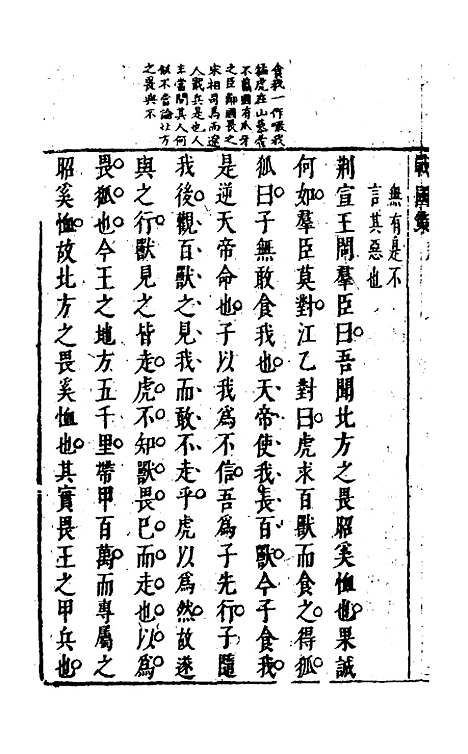 戰國策
無有是不
言其惡也
荆宣王問羣臣曰吾聞北方之畏昭奚恤也果誠
何如羣臣莫對江乙對曰虎求百獸而食之得狐
狐曰子無敢食我也天帝使我長百獸今子食我
是逆天帝命也子以我爲不信吾爲子先行子隨
我後觀百獸之見我而敢不走乎虎以爲然故遂
與之行獸見之皆走虎不知獸畏已而走也以爲
畏狐也今王之地方五千里帶甲百萬而專屬之
昭奚恤故北方之畏奚恤也其實畏王之甲兵也
食我一作噉我
猛虎在山藜藿
不採國有爪牙
之臣鄰國畏之
宋相司馬而遼
人戢兵是也人
主當問其人何
似不當論北方
之畏與不